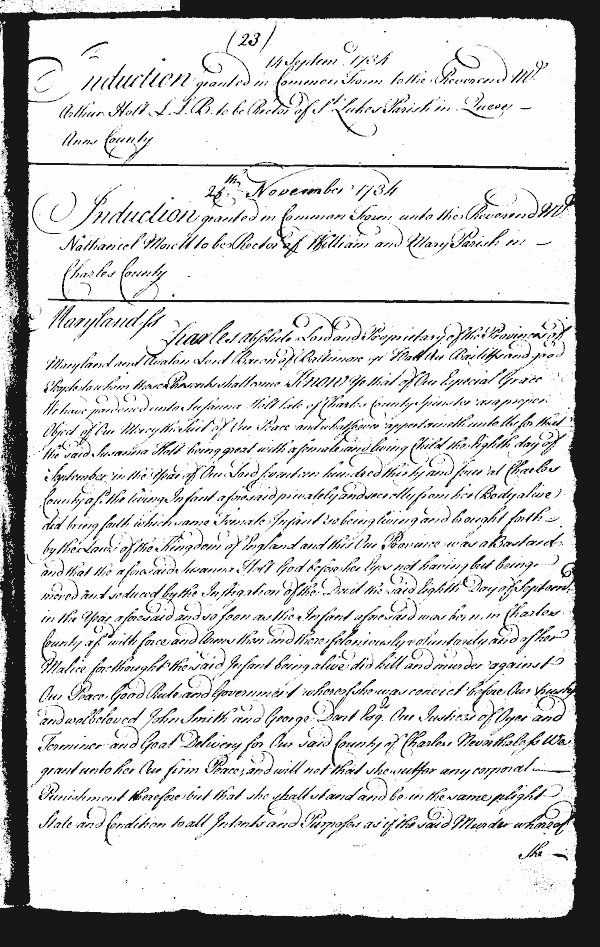 (23)
14 Septem.r 1734
Induction granted in Common Form to the Reverend Mr.
Arthur Holt L.L.B. to be Rector of St. Lukes Parish in Queen
Anns County
25th November 1734
Induction granted in Common Form unto the Reverend Mr.
Nathaniel Morell to be Rector of William and Mary Parish in
Charles County
Maryland ss
Charles absolute Lord and Proprietary of the Provinces of
Maryland and Avalon Lord Baron of Baltimore &c To all Our Bailiffs and good
People to whom these Presents shall come Know Ye that of Our Especial Grace
We have pardoned unto Susanna Holt late of Charles County Spinster as a proper
Object of Our Mercy the Suit of Our Peace and whatsoever appertaineth unto Us for that
the said Susanna Holt being great with a female and living Child the Eighth day of
September in the Year of Our Lord seventeen hundred thirty and four at Charles
County afd. the living Infant aforesaid privately and secretly from her Body alive
did bring forth which same Female Infant so being living and brought forth
by the Laws of the Kingdom of England and this Our Province was a Bastard
and that the aforesaid Susanna Holt God before her Eyes not having but being
moved and seduced by the Instigation of the Devil the said Eighth Day of September
in the Year aforesaid and so soon as the Infant aforesaid was born in Charles
County afd. with force and Arms then and there feloniously voluntarily and of her
Malice forethought the said Infant being alive did kill and murder against
Our Peace Good Rule and Government whereof she was convict before Our trusty
and welbeloved John Smith and George Dent Esqrs. Our Justices of Oyer and
Terminer and Goal Delivery for Our said County of Charles Nevertheless We
grant unto her Our firm Peace, and will not that she suffer any corporal
Punishment therefore but that she shall stand and be in the same plight
State and Condition to all Intents and Purposes as if the said Murder whereof
She